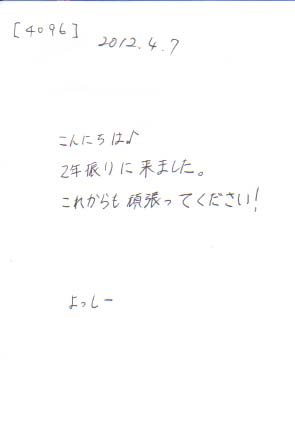 [4096]
2012.4.7
こんにちは♪
2年振りに来ました。
これからも頑張ってください!
よっしー